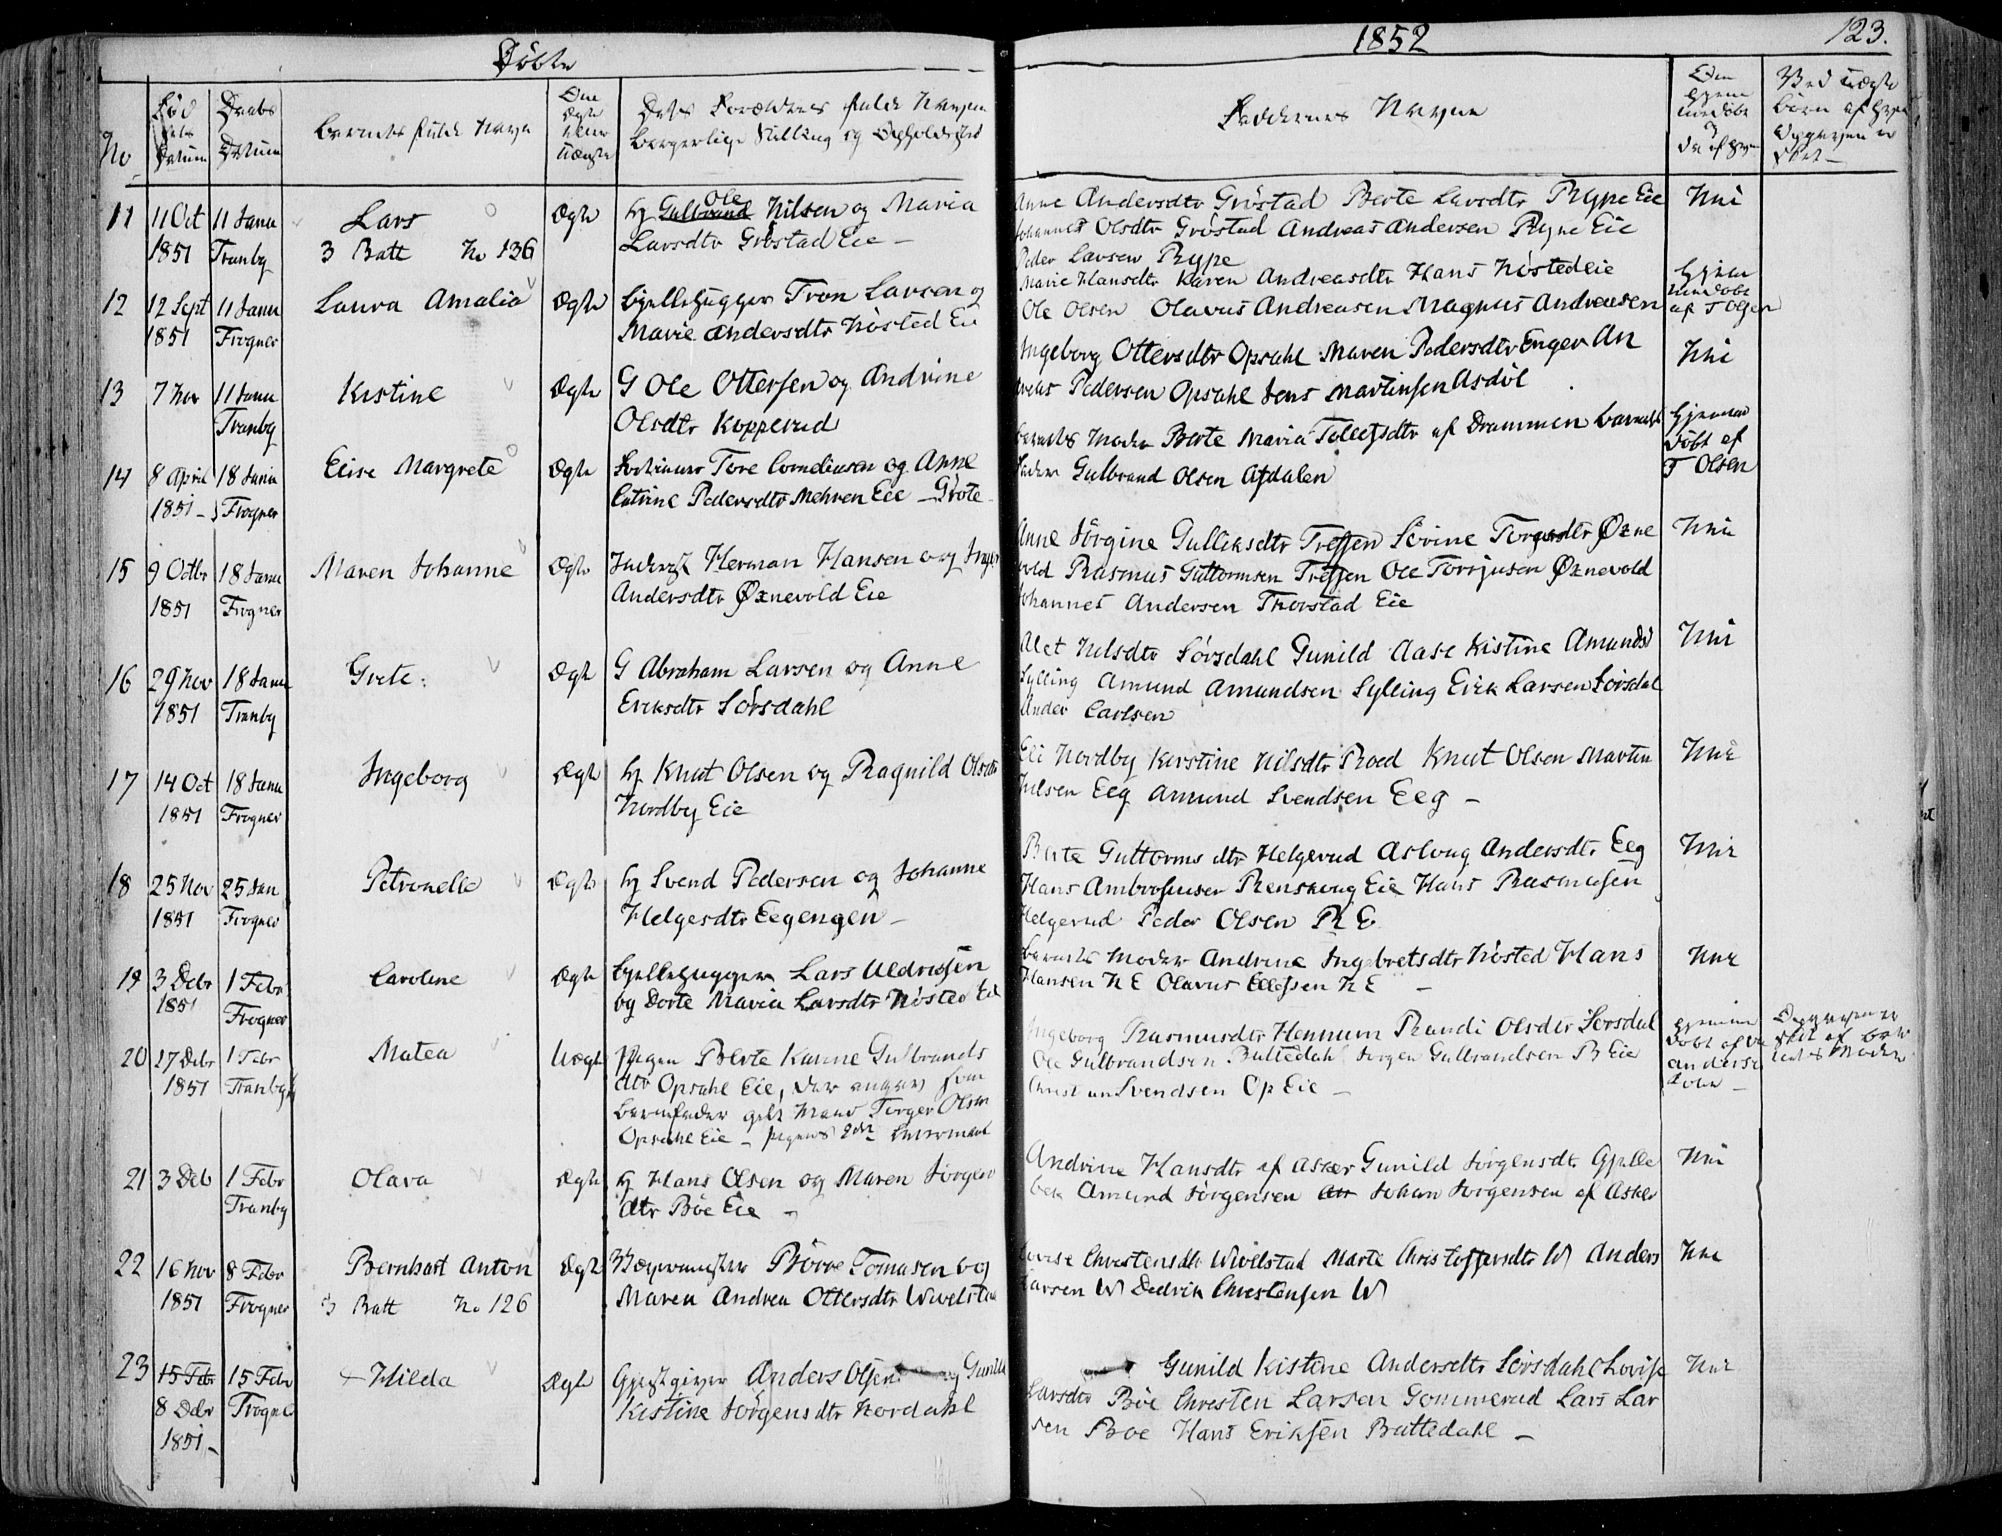 Døbte
1852
123.
No
Fød Dato Datum
Daabs Datum
Barnets fulde Navn
Om Ægte eller Uægte
Dets Forældres fulde Navne
borgerlige Stilling og Opholdssted
Faddernes Navne
Om Hjemmedøbt og da af hvem
Ved Uægte Børn af hvem Opgaven er skeet —
11 11 Oct 11 Janu Lars Ægte Hj Gulbrand Ole Nilsen og Maria
1851 Tranby 3 Batt No 136 Larsdtr Grøstad Eie —
Anne Andersdtr Grøstad Berte Larsdtr Rype Eie Nei
Johannes Olsdtr Grøstad Andreas Andersen Rype Eie
Peder Larsen Rype
12 12 Sept 11 Janu Laura Amalia Ægte Gjellehugger Tron Larsen og
1851 Frogner Marie Andersdtr Nøsted Eie
Marie Hansdtr Karen Andreasdtr Hans Nøsted Eie
Ole Olsen Olavus Andreasen Magnus Andreasen
Hjemmedøbt af T Olsen
13 7 Nov 11 Janu Kistine Ægte G Ole Ottersen og Andrine
Tranby Olsdtr Kopperud
Ingeborg Ottersdtr Opsahl Maren Pedersdtr Enger An
dreas Pedersen Opsahl Jens Martinsen Asdøl
Nei
14 8 April 18 Janu Elise Margrete Ægte Tore Corneliusen og Anne
1851 — Frogner Catrine Pedersdtr Mehren Eie — Grøte
Barnets Moder Berte Maria Tollefsdtr af Drammen Barnets
Fader Gulbrand Olsen Asdalen
Hjemmedøbt af T Olsen
15 9 Octbr 18 Janu Maren Johanne Ægte Inderst Herman Hansen og Inger
1851 Frogner Andersdtr Øxnevold Eie
Anne Jørgine Gulliksdtr Treffen Sørine Torgersdtr Øxne
vold Rasmus Guttormsen Treffen Ole Torsjusen Øxnevold
Johannes Andersen Thorstad Eie
Nei
16 29 Nov 18 Janu Grete. Ægte G Abraham Larsen og Anne
1851 Tranby Eriksdtr Sørsdahl
Alet Nilsdtr Sørsdahl Gunild Aase Kistine Amunds
Sylling Amund Amundsen Sylling Eirik Larsen Sørsdal
Ander Carlsen
Nei
17 14 Oct 18 Janu Ingeborg Ægte Hj Knut Olsen og Ragnild Olsdtr
1851 Frogner Nordby Eie
Eli Nordby Kirstine Nilsdtr Roed Knut Olsen Martin
Nilsen Eeg Amund Svendsen Eeg —
Nei
18 25 Nov 25 Jan Petronelle Ægte Hj Svend Pedersen og Johanne
1851 Frogner Helgesdtr Eegengen —
Berte Guttormsdtr Helgerud Aslaug Andersdtr Eeg
Hans Ambrosiusen Renskoug Eie Hans Rasmusen
Helgerud Peder Olsen R E
Nei
19 3 Debr 1 Febr Caroline Ægte Gjellehugger Lars Uldrissen
1851 Frogner og Dorte Maria Larsdtr Nøsted Eie
Barnets Moder Andrine Ingebretsdtr Nøsted Hans
Hansen N E Olavus Ellefsen N E —
Nei
20 17 Debr 1 Febr Matea Uægte Pigen Berte Karine Gulbrands
1851 Tranby dtr Opsahl Eie, der angav som
Barnefader gift Mand Torger Olsen
Opsahl Eie — Pigens 2den Leiermaal
Ingeborg Rasmusdtr Hennum Randi Olsdtr Sørsdal
Ole Gulbrandsen Buttedahl Jørgen Gulbrandsen B Eie
Christian Svendsen Op Eie —
Opgaven er skeet af Barnets Moder
21 3 Deb 1 Febr Olava Ægte Hj Hans Olsen og Maren Jørgens
Tranby dtr Bøe Eie —
Andrine Hansdtr af Asker Gunild Jørgensdtr Gjelle
bek Amund Jørgensen Johan Jørgensen af Asker
Nei
22 16 Nov 8 Febr Bernhart Anton Ægte Børre Tomasen og
1851 Frogner 3 Batt No 126 Maren Andrea Ottersdtr Wivelstad
Lovise Christensdtr Wivelstad Marte Christoffersdtr W Anders
Larsen W Dedrik Christensen W
Nei
23 15 Febr 15 Febr Hilda Ægte Gjestgiver Anders Olsen og Gunild
8 Debr Frogner Kistine Jørgensdtr Nordahl
1851 —
Gunild Kistine Andersdtr Sørsdahl Lovise
Larsdtr Bøe Christen Larsen Gommerud Lars Lar
sen Bøe Hans Eriksen Buttedahl —
Nei